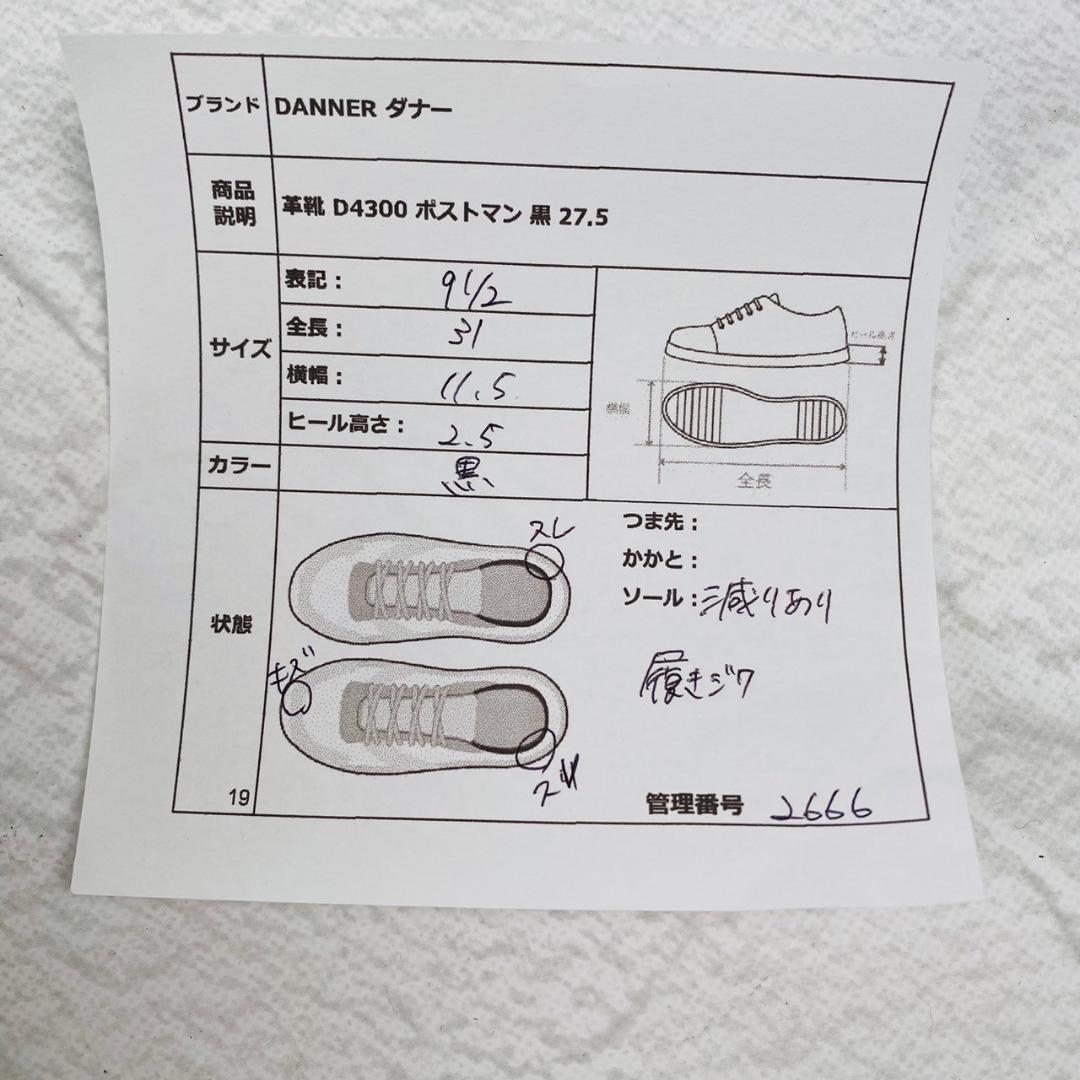 ブランド DANNER ダナー
商品説明 革靴 D4300 ポストマン 黒 27.5
サイズ
表記： 9 1/2
全長： 31
横幅： 11.5
ヒール高さ： 2.5
ヒール高さ
横幅
全長
カラー 黒
状態
スレ
キズ
スレ
つま先：
かかと：
ソール： 減りあり
履きジワ
19
管理番号 2666